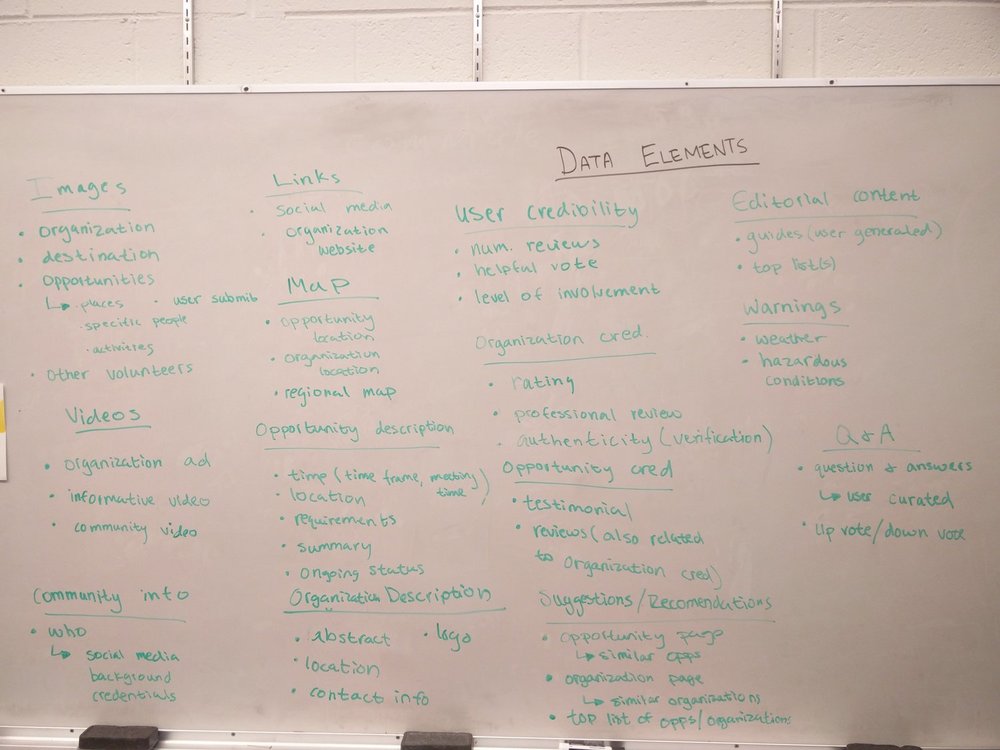 DATA ELEMENTS
Images
• organization
• destination
• opportunities
↳ • places • user submit
• specific people
• activities
• Other volunteers
Videos
• organization ad
• informative video
• community video
Community info
• who
↳ social media
background
credentials
Links
• social media
• organization
website
Map
• opportunity
location
• organization
location
• regional map
Opportunity description
• time (time frame, meeting
time)
• location
• requirements
• summary
• Ongoing status
Organization Description
• abstract • logo
• location
• contact info
User Credibility
• num. reviews
• helpful vote
• level of involvement
Organization cred.
• rating
• professional review
• authenticity (verification)
Opportunity cred
• testimonial
• reviews (also related
to Organization cred)
Suggestions/Recomendations
• opportunity page
↳ similar opps
• organization page
↳ similar organizations
• top list of opps/organizations
Editorial content
• guides (user generated)
• top list(s)
Warnings
• weather
• hazardous
conditions
Q & A
• question & answers
↳ user curated
• Up vote/down vote